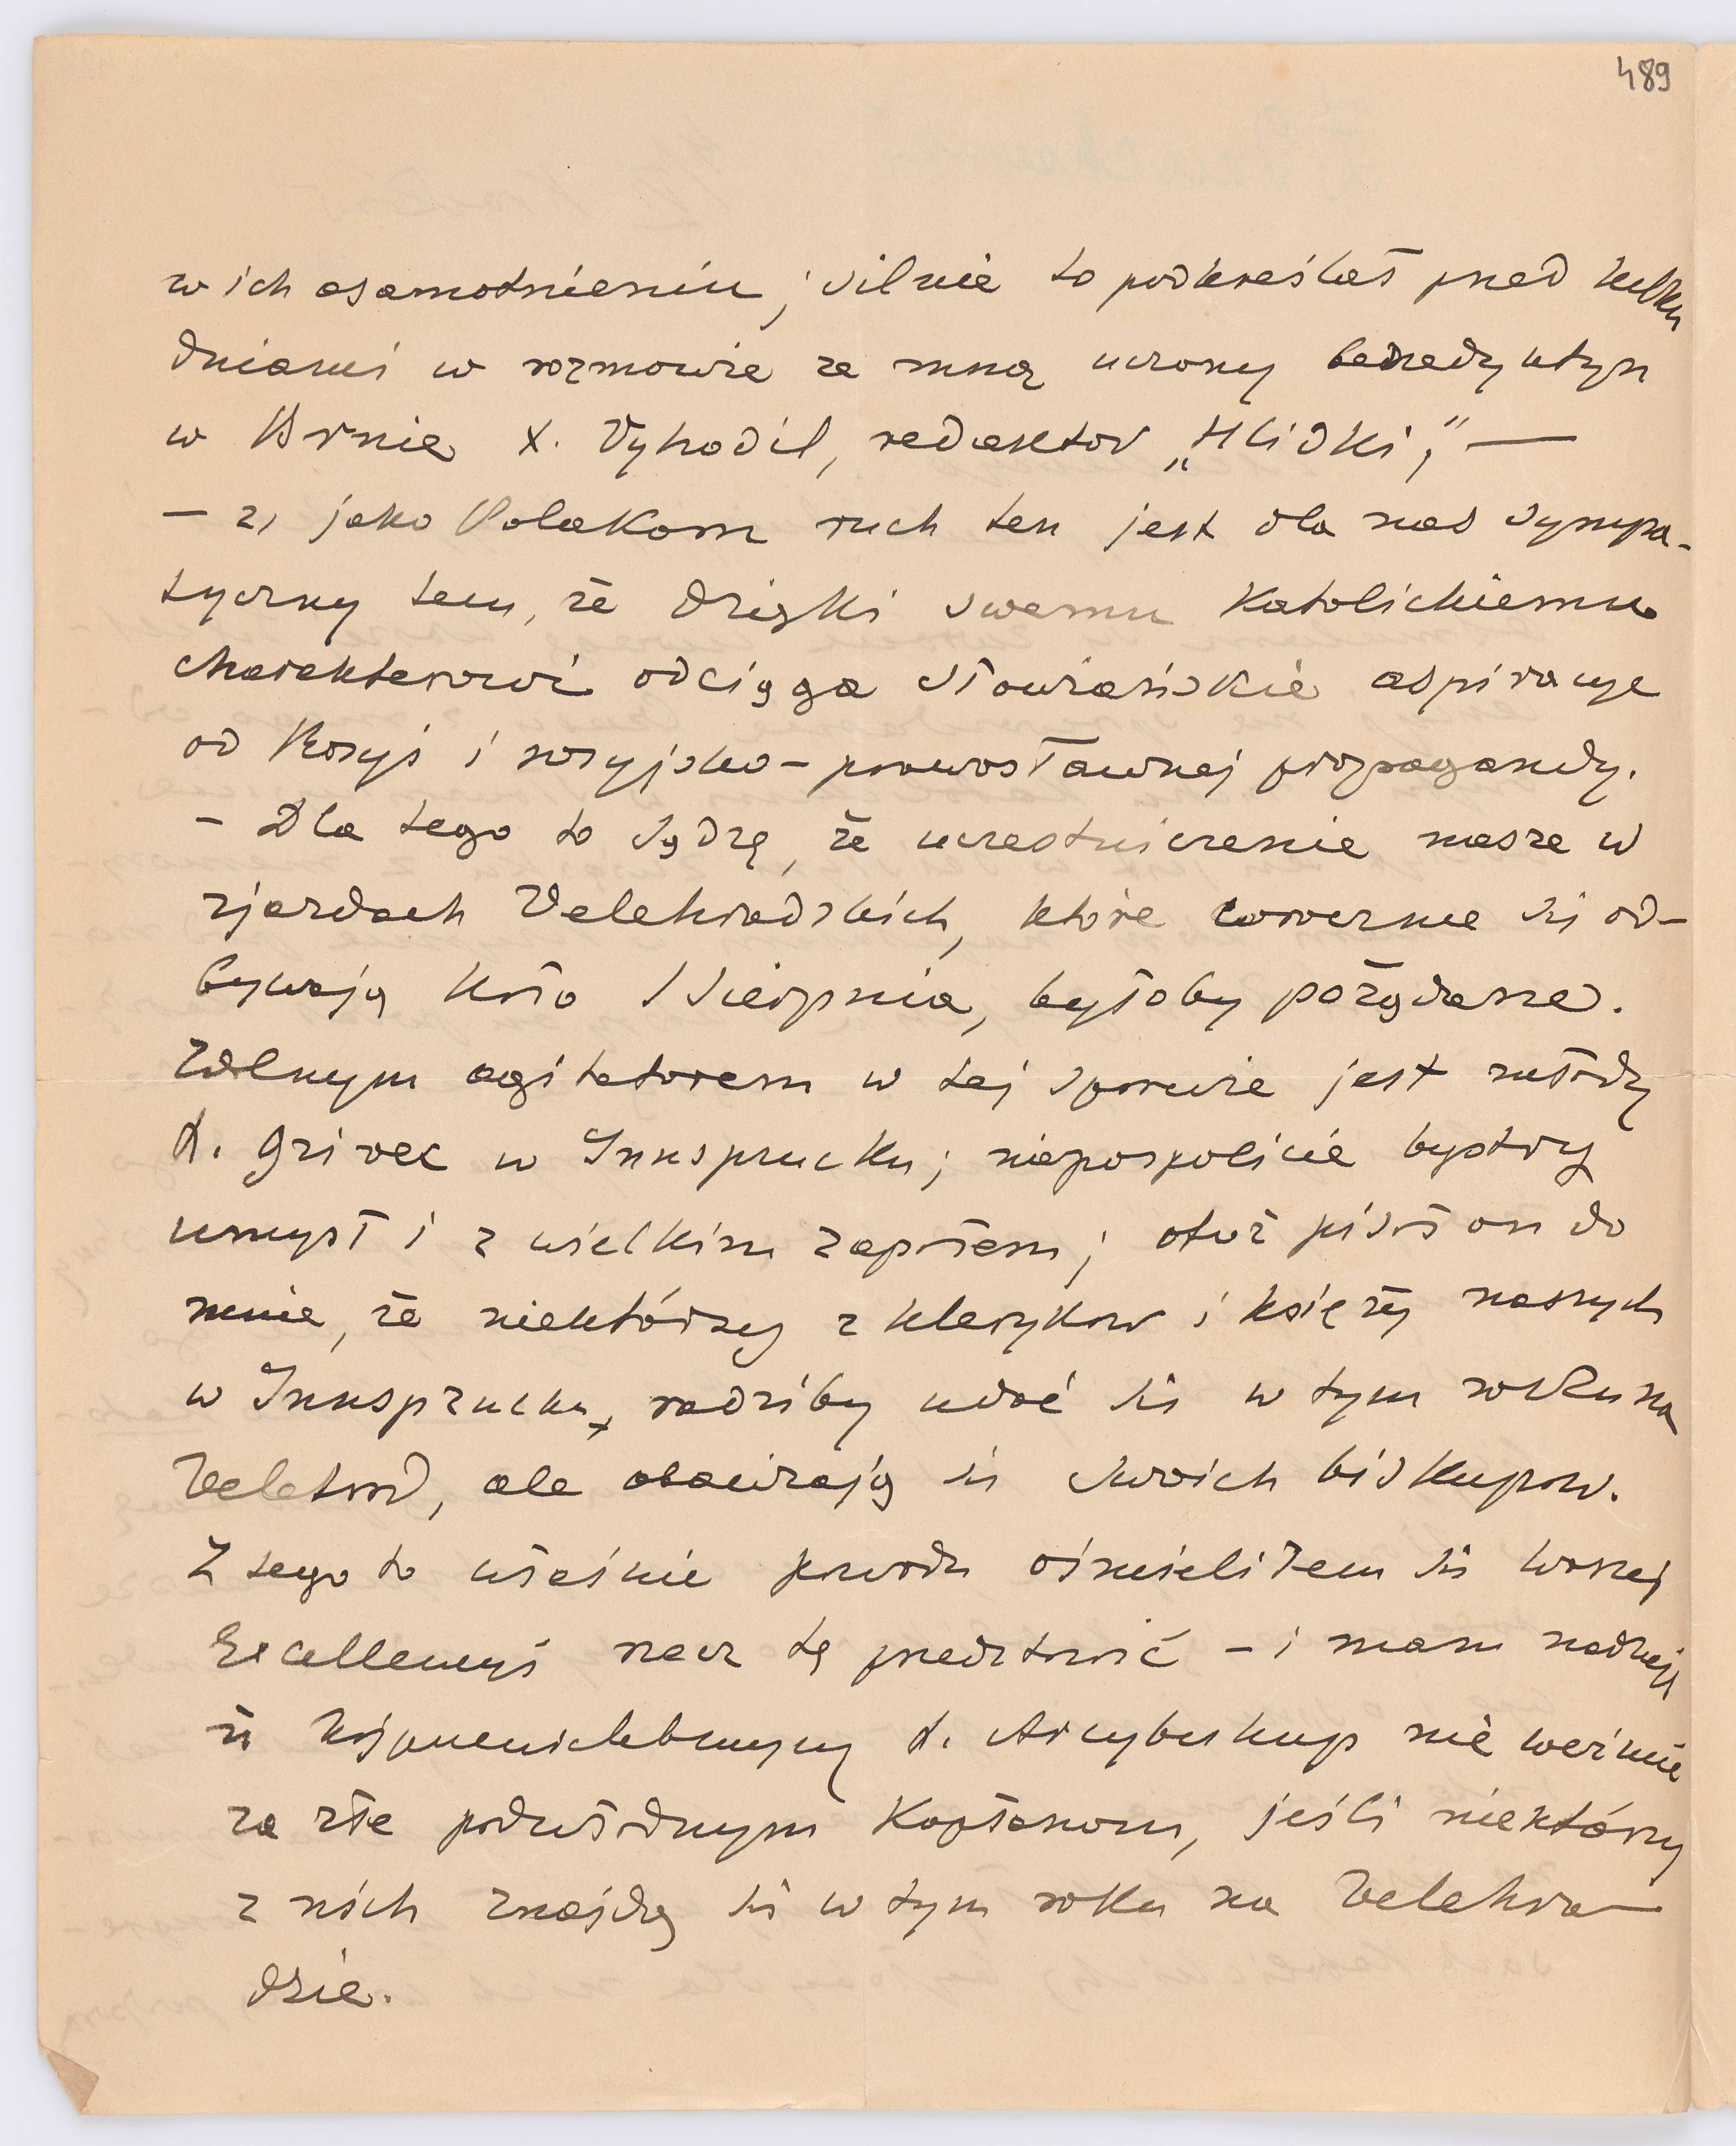 489
w ich osamotnieniu; silnie to podkreślał przed kilku
dniami w rozmowie ze mną uczony benedyktyn
w Brnie X. Vyhodil, redaktor „Hlidki”, —
— 2, jako Polakom ruch ten jest dla nas sympa-
tyczny tem, że dzięki swemu katolickiemu
charakterowi odciąga słowiańskie aspiracye
od Rosyi i rosyjsko-prawosławnej propagandy.
— Dla tego to sądzę, że uczestniczenie nasze w
zjazdach Velehradzkich, które corocznie się od-
bywają koło 1 Sierpnia, byłoby pożądane.
Zdolnym agitatorem w tej sprawie jest młody
X. Grivec w Innsprucku; niepospolicie bystry
umysł i z wielkim zapałem; otóż pisał on do
mnie, że niektórzy z kleryków i księży naszych
w Innsprucku, radziby udać się w tym roku na
Velehrad, ale obawiają się swoich biskupów.
Z tego to właśnie powodu ośmieliłem się Waszej
Excellencyi rzecz tę przedstawić — i mam nadzieję
że Najprzewielebniejszy X. Arcybiskup nie weźmie
za złe podwładnym Kapłanom, jeśli niektórzy
z nich znajdą się w tym roku na Velehra-
dzie.